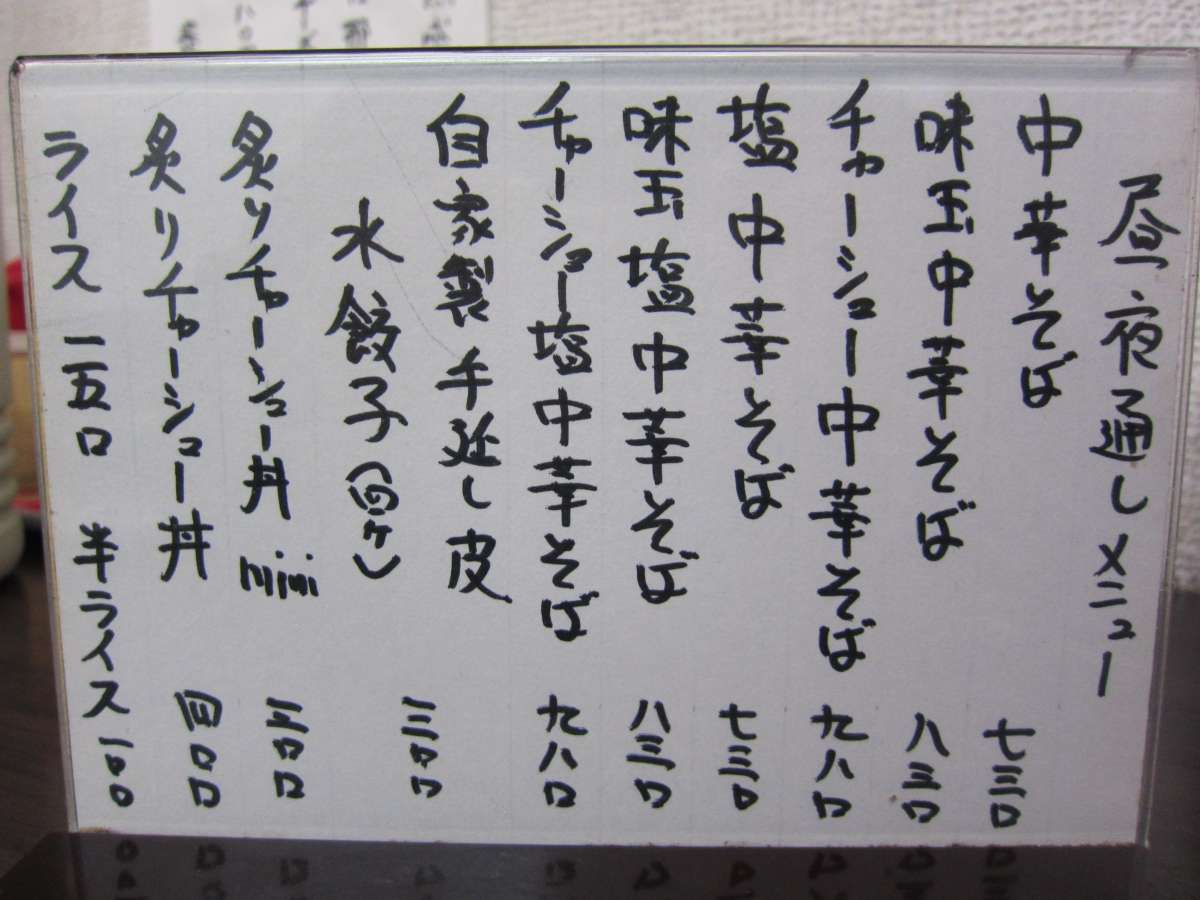 昼夜通しメニュー
中華そば 七三〇
味玉中華そば 八三〇
チャーシュー中華そば 九八〇
塩中華そば 七三〇
味玉塩中華そば 八三〇
チャーシュー塩中華そば 九八〇
自家製手延し皮
水餃子(四ヶ) 三〇〇
炙りチャーシュー丼 mini 三〇〇
炙りチャーシュー丼 四〇〇
ライス 一五〇 半ライス 一〇〇